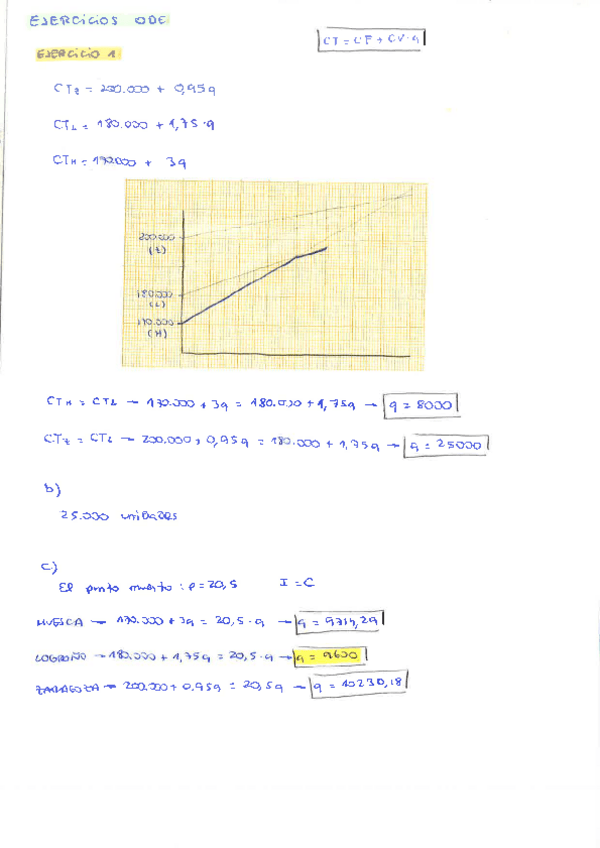 EJERCICIOS ODE
CT = CF + CV·q
EJERCICIO 1
CTz = 200.000 + 0,95q
CTL = 180.000 + 1,75·q
CTH = 170.000 + 3q
200.000
(Z)
180.000
(L)
170.000
(H)
CTH = CTL → 170.000 + 3q = 180.000 + 1,75q → q = 8000
CTz = CTL → 200.000 + 0,95q = 180.000 + 1,75q → q = 25000
b)
25.000 unidades
c)
El punto muerto: p = 20,5 I = C
HUESCA → 170.000 + 3q = 20,5·q → q = 9714,29
LOGROÑO → 180.000 + 1,75q = 20,5·q → q = 9600
ZARAGOZA → 200.000 + 0.95q = 20,5q → q = 10230,18